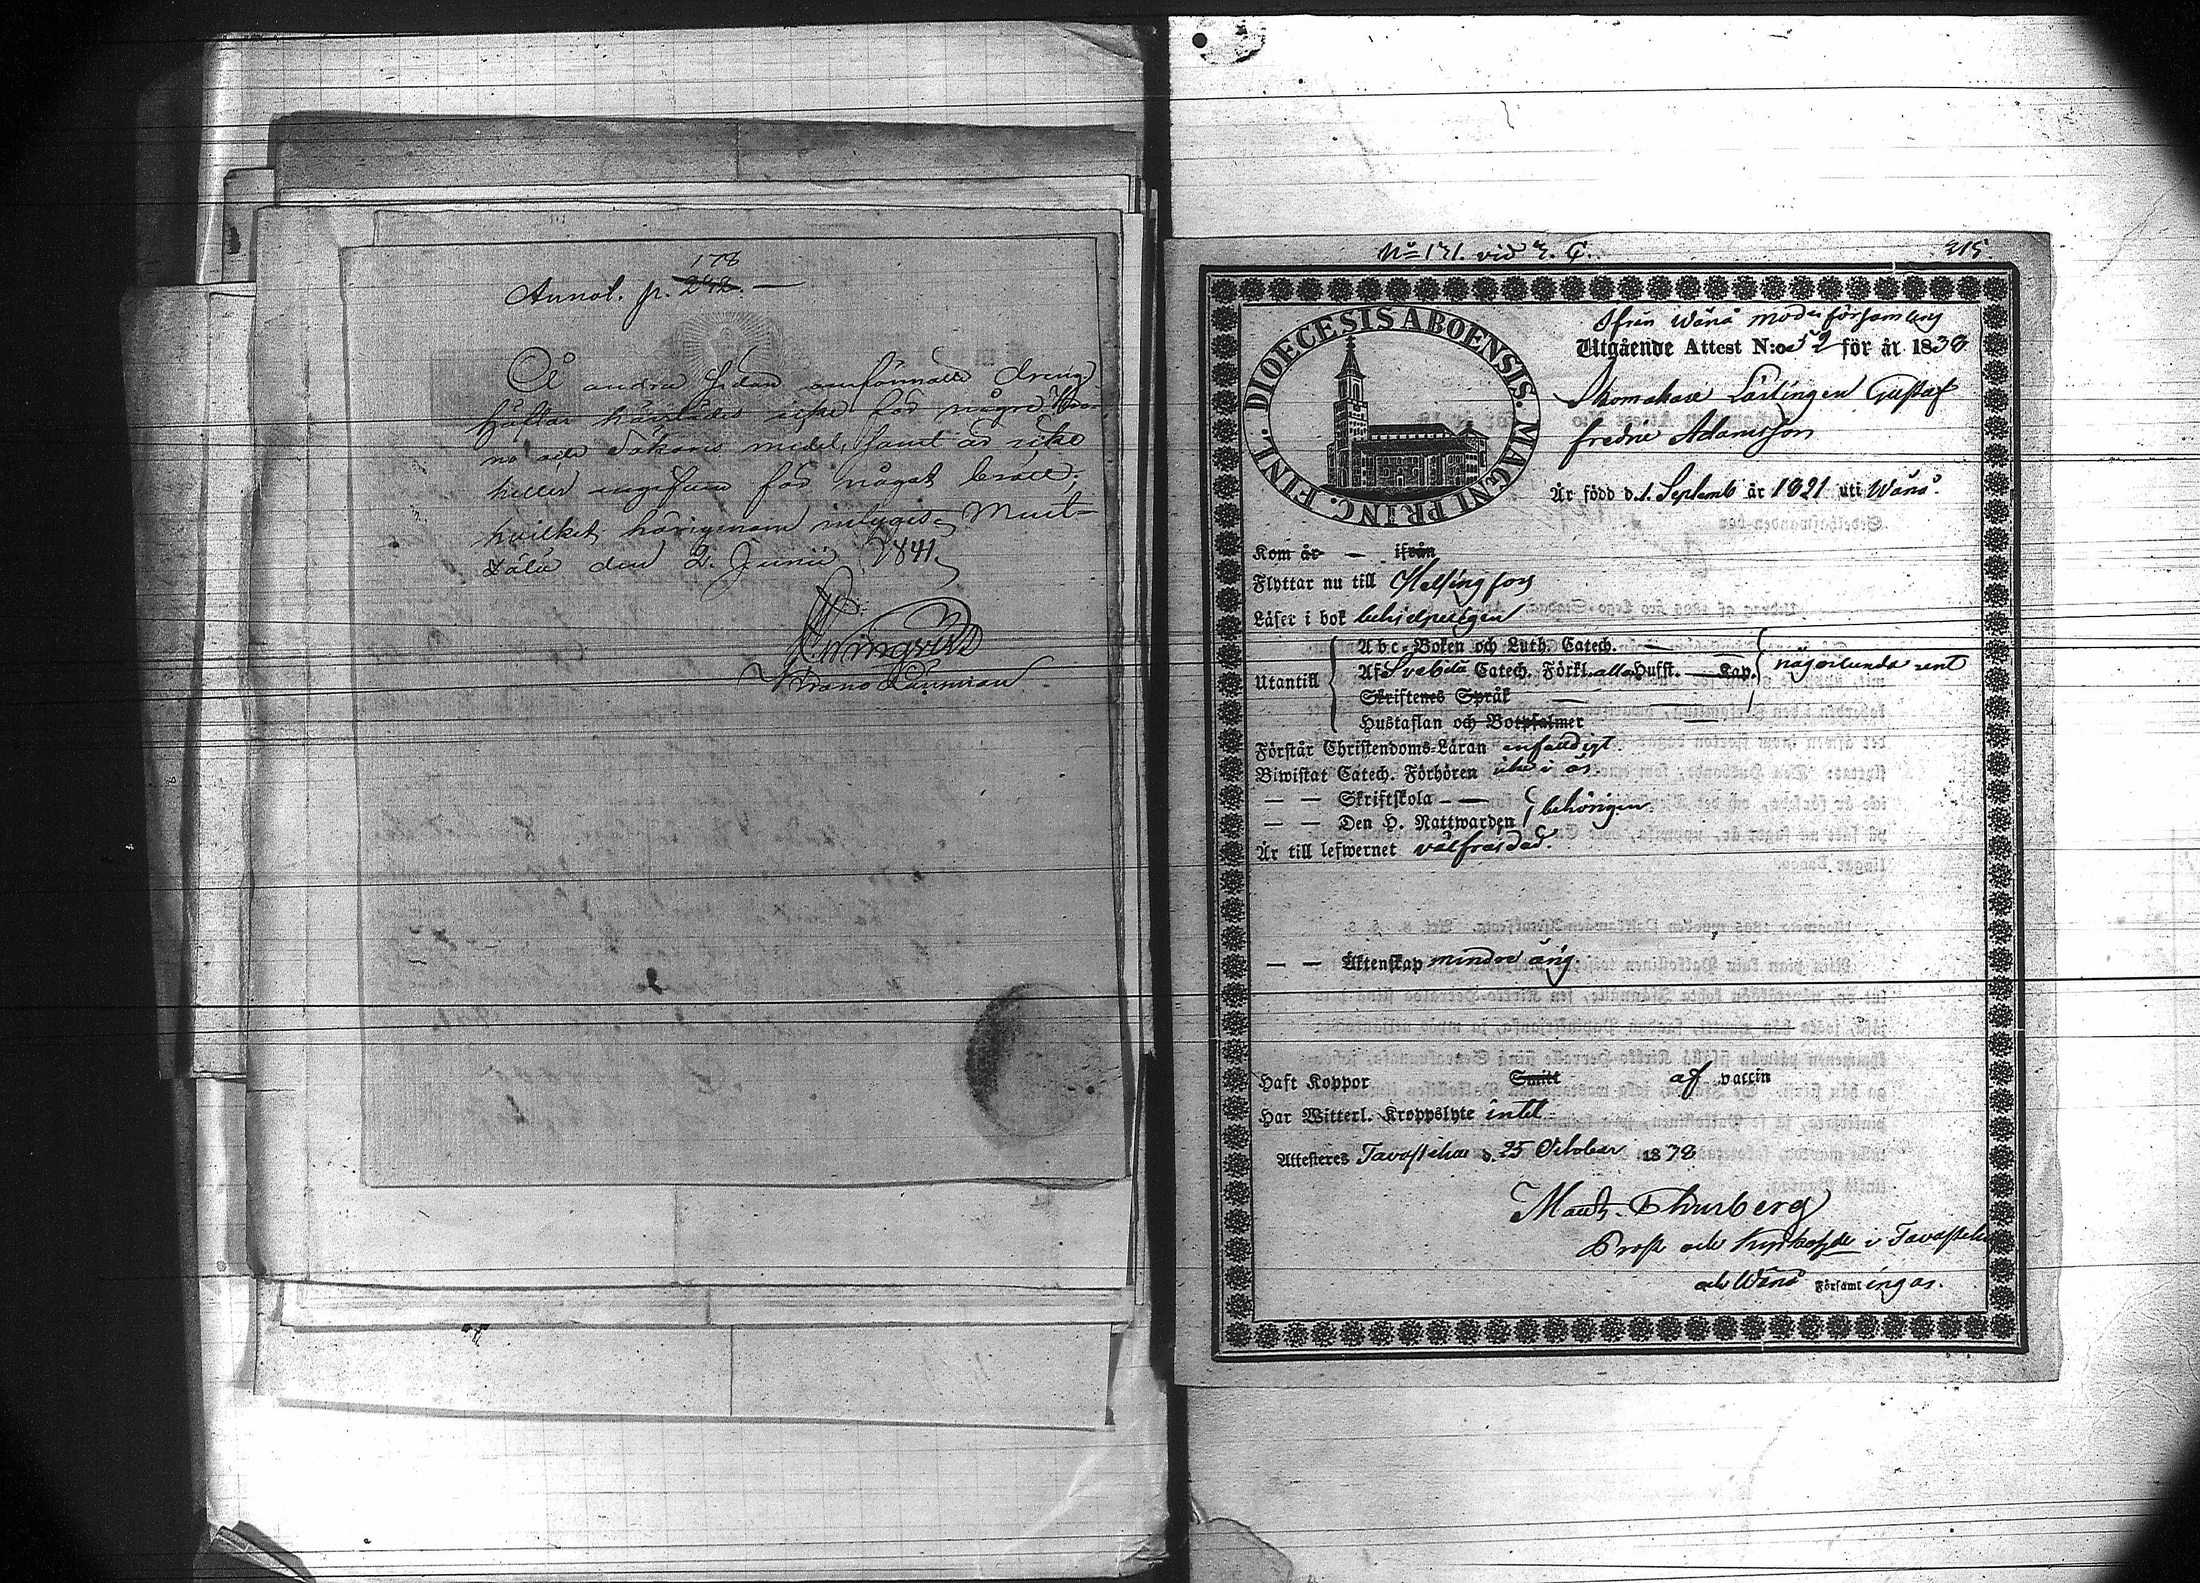 178
Annot. p. 242. —
Å andra sidan omförmälte dreng
häftar härstädes icke för några Kro-
no eller Sökares medel, samt är icke
heller angifven för något brott,
hvilket härigenom intygas,
den 2. Junii 1841.
Krono Länsman
No 131. vid
315.
DIOECESIS ABOENSIS. MAGNI PRINC. FINL.
Ifrån Wånå moderförsamling
Utgående Attest N:o 52 för år 1838
Skomakare Lärlingen Gustaf
Adamsson
Är född d. 1. Septemb år 1821 uti Wånå.
Kom år — ifrån
Flyttar nu till Helsingfors
Läser i bok behjelpeligen
Utantill
Abc-Boken och Luth. Catech. —
Af Svebelii Catech. Förkl. alla Hufst. — Kap. någorlunda rent
Skriftenes Språk —
Hustaflan och Botpsalmer —
Förstår Christendoms-Läran enfaldigt
Biwistat Catech. Förhören
— — Skriftskola — — behörigen
— — Den H. Nattwarden
Är till lefwernet välfräjdad.
— — Äktenskap minderårig.
Haft Koppor Smitt af vaccin
Har Witterl. Kroppslyte intet
Attesteras Tavastehus d. 25 October 1838
Thurberg
Prost och Kyrkoherde i Tavastehus
och Wånå Församlingar.